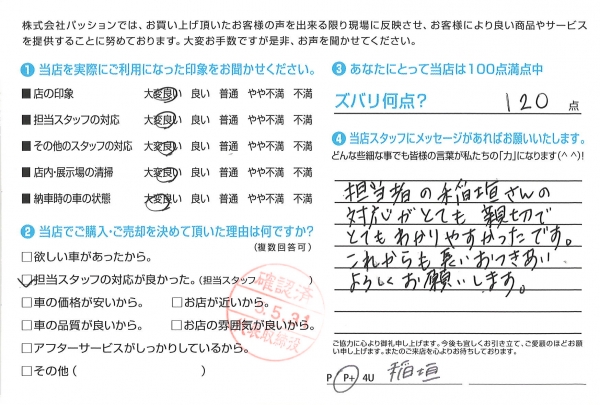 株式会社パッションでは、お買い上げ頂いたお客様の声を出来る限り現場に反映させ、お客様により良い商品やサービス
を提供することに努めております。大変お手数ですが是非、お声を聞かせてください。
❶当店を実際にご利用になった印象をお聞かせください。
■店の印象 大変良い 良い 普通 やや不満 不満
■担当スタッフの対応 大変良い 良い 普通 やや不満 不満
■その他のスタッフの対応 大変良い 良い 普通 やや不満 不満
■店内・展示場の清掃 大変良い 良い 普通 やや不満 不満
■納車時の車の状態 大変良い 良い 普通 やや不満 不満
❷当店でご購入・ご売却を決めて頂いた理由は何ですか?
(複数回答可)
□欲しい車があったから。
□担当スタッフの対応が良かった。(担当スタッフ )
□車の価格が安いから。 □お店が近いから。
□車の品質が良いから。 □お店の雰囲気が良いから。
□アフターサービスがしっかりしているから。
□その他( )
確認済
5.31
❸あなたにとって当店は100点満点中
ズバリ何点? 120 点
❹当店スタッフにメッセージがあればお願いいたします。
どんな些細な事でも皆様の言葉が私たちの「力」になります(^^)!
担当者の稲垣さんの
対応がとても親切で
とてもわかりやすかったです。
これからも長いおつきあい
よろしくお願いします。
ご協力に心より御礼申し上げます。今後も宜しくお引き立て、ご愛顧のほどお願
い申し上げます。またのご来店を心よりお待ちしております。
P P+ 4U 稲垣